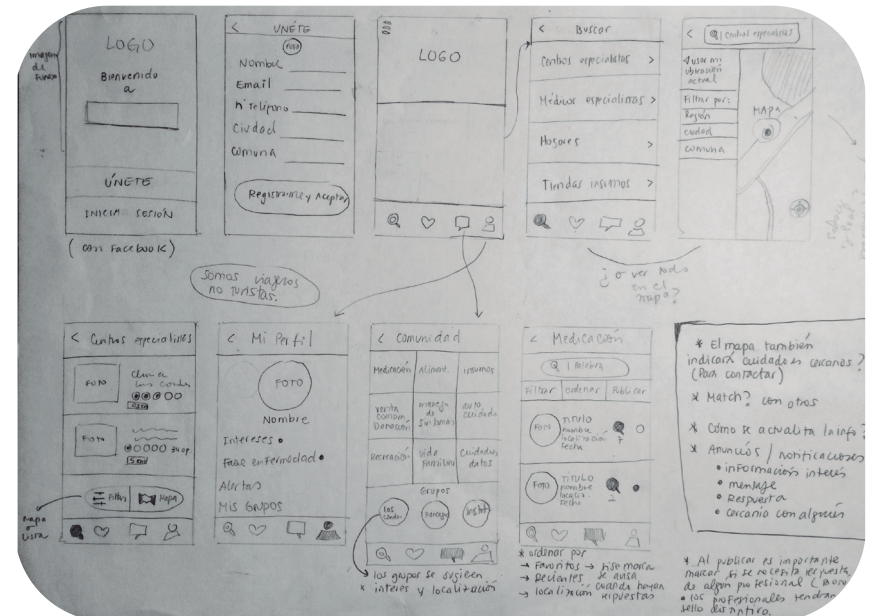 imagen
de
Fondo
LOGO
Bienvenido
a
ÚNETE
INICIA SESIÓN
(con Facebook)
< ÚNETE
FOTO
Nombre
Email
n° Teléfono
Ciudad
Comuna
Registrarme y Aceptar
LOGO
< Buscar
Centros especialistas >
Médicos especialistas >
Hogares >
Tiendas insumos >
< Centros especialistas
usar mi
ubicación
actual
Filtrar por:
Región
Ciudad
Comuna
MAPA
Somos viajeros
no turistas.
¿o ver todo
en el
mapa?
< Centros especialistas
FOTO
Clínica
Las Condes
FOTO
Filtro
Mapa
Mapa
o
Lista
< Mi Perfil
FOTO
Nombre
Intereses
Fase enfermedad
Alertas
Mis GRUPOS
< Comunidad
Medicación
Aliment.
insumos
Venta
Compra
Donación
manejo
de
Síntomas
auto
cuidado
Recreación
vida
Familiar
Cuidados
datos
Grupos
Las
Condes
los grupos se sugieren
x interés y localización
< Medicación
Palabra
Filtrar
ordenar
Publicar
FOTO
TITULO
nombre
localización
fecha
7
0
FOTO
TITULO
nombre
localiz.
fecha
2
* ordenar por
→ Favoritos
→ Recientes
→ localización
→ si se marca
se avisa
cuando hayan
respuestas
* El mapa también
indicará cuidadores cercanos?
(Para contactar)
* Match? con otros
* Cómo se actualiza la info?
* Anuncios / notificaciones
• información interés
• mensaje
• Respuesta
• cercanía con alguien
* Al publicar es importante
marcar si se necesita respuesta
de algún profesional
• los profesionales tendrán
sello distintivo.